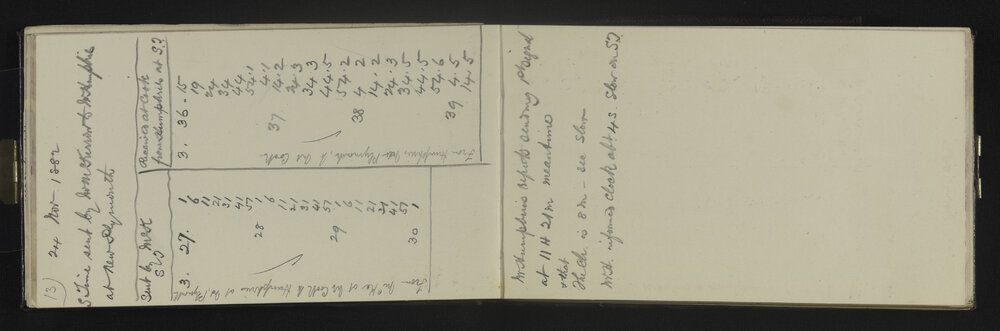 13) 24 Nov. 1882
S Time sent by Mr McKerrow to Mr Humphries
at New Plymouth
Sent by McK
S D
3. 27. 1
6
11
21
31
41
51
28 1
6
11
21
31
41
51
29 1
6
11
21
31
41
51
30 1
From McK at Cook to Humphries at Plymouth
Received at Cook
from Humphries at S.D
3. 36. 15
19
24
34
44
54.1
37 4.1
14.2
24.3
34.3
44.5
54.2
38 4.2
14.2
24.3
34.5
44.5
54.6
39 4.5
14.5
From Humphries, Plymouth, to Cook
Mr Humphries reports sending signal
at 11 H 21 m meantime
& that
The Ch. is 8 m – sec Slow
McK. informed clock abt 4 S. slow on SD